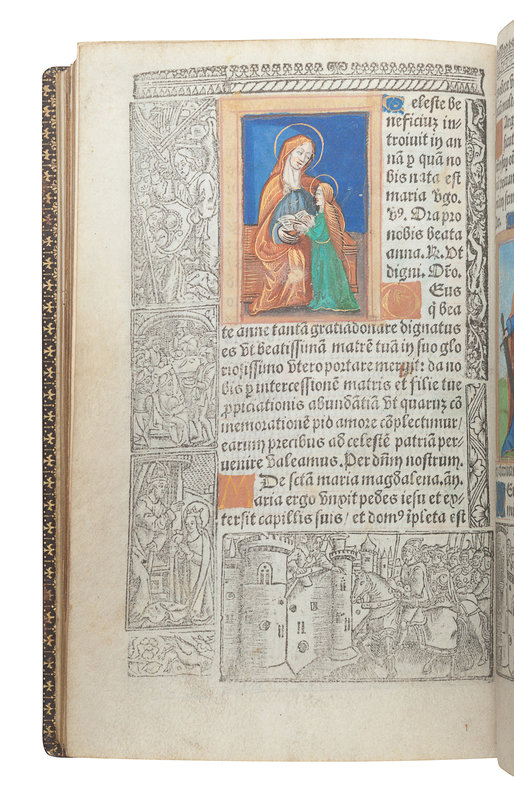 Celeste be
neficiuz in-
troiuit in an
nā p quā no
bis nata est
maria v̄go.
v̄9. Ora pro
nobis beata
anna. R. Ut
digni. Orō.
Deus
q̄ bea
te anne tantā gratiā donare dignatus
es vt beatissimā matrē tuā in suo glo
riosissimo vtero portare meruit: da no
bis p intercessionē matris et filie tue
p̄piciationis abundātiā vt quarum cō
memorationē pio amore cōplectimur/
earum precibus ad celestē patriā per-
uenire valeamus. Per dn̄m nostrum.
De sctā maria magdalena. añ.
Maria ergo vnxit pedes iesu et ex
tersit capillis suis/ et dom9 īpleta est